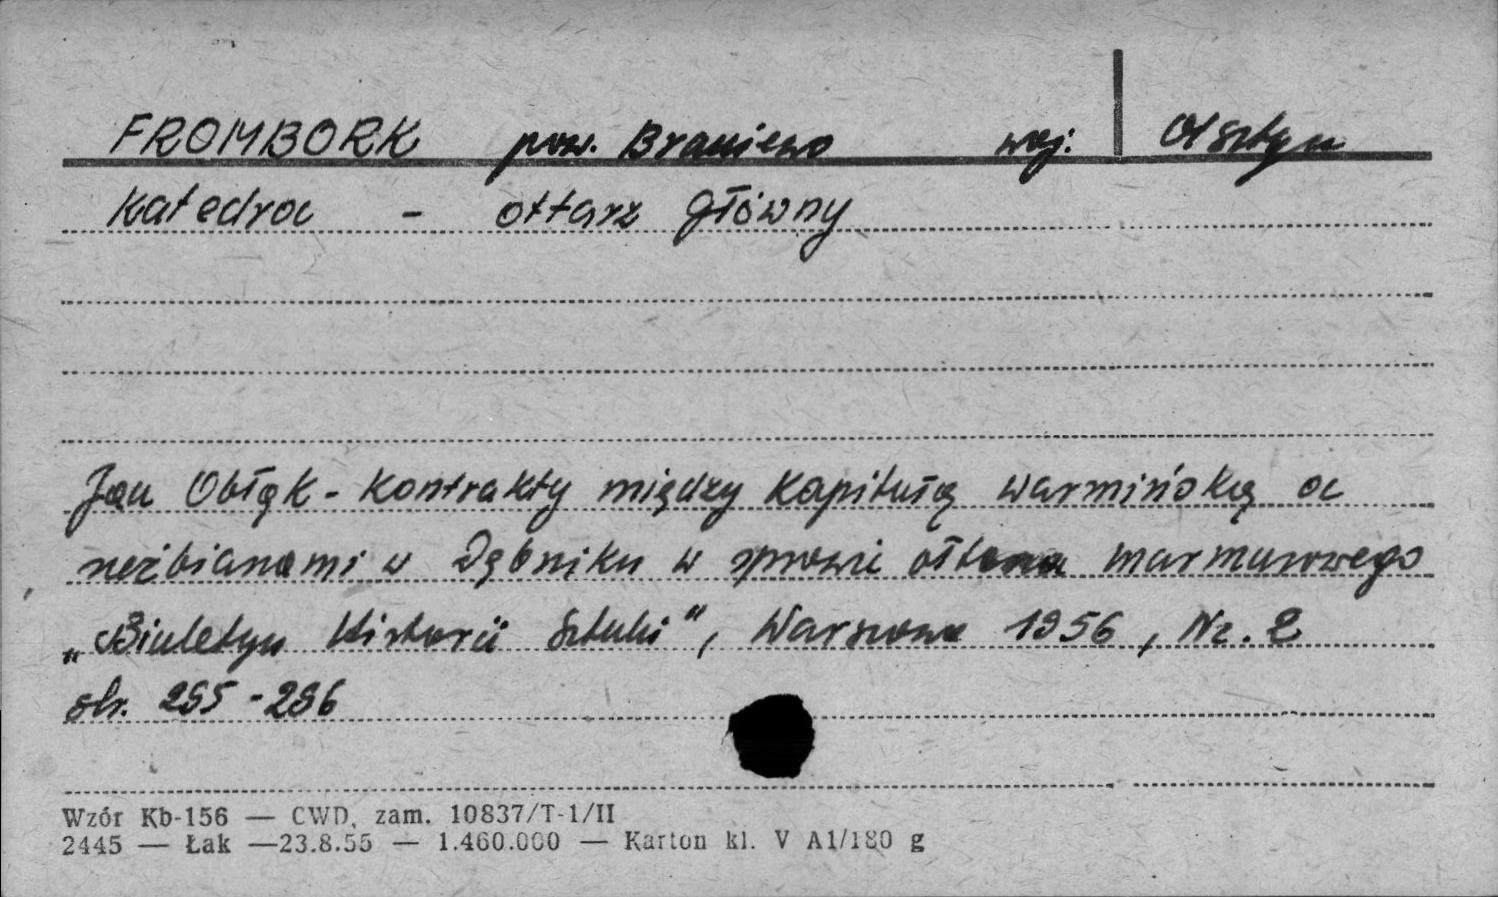 FROMBORK pow. Braniewo woj. Olsztyn
Katedra - ołtarz główny
Jan Obłąk - Kontrakty między Kapitułą warmińską a
rzeźbiarzami w Dębniku w sprawie ołtarza marmurowego
„Biuletyn Historii Sztuki", Warszawa 1956, Nr. 2
str. 295-296
Wzór Kb-156 — CWD, zam. 10837/T-1/II
2445 — Łak —23.8.55 — 1.460.000 — Karton kl. V A1/180 g